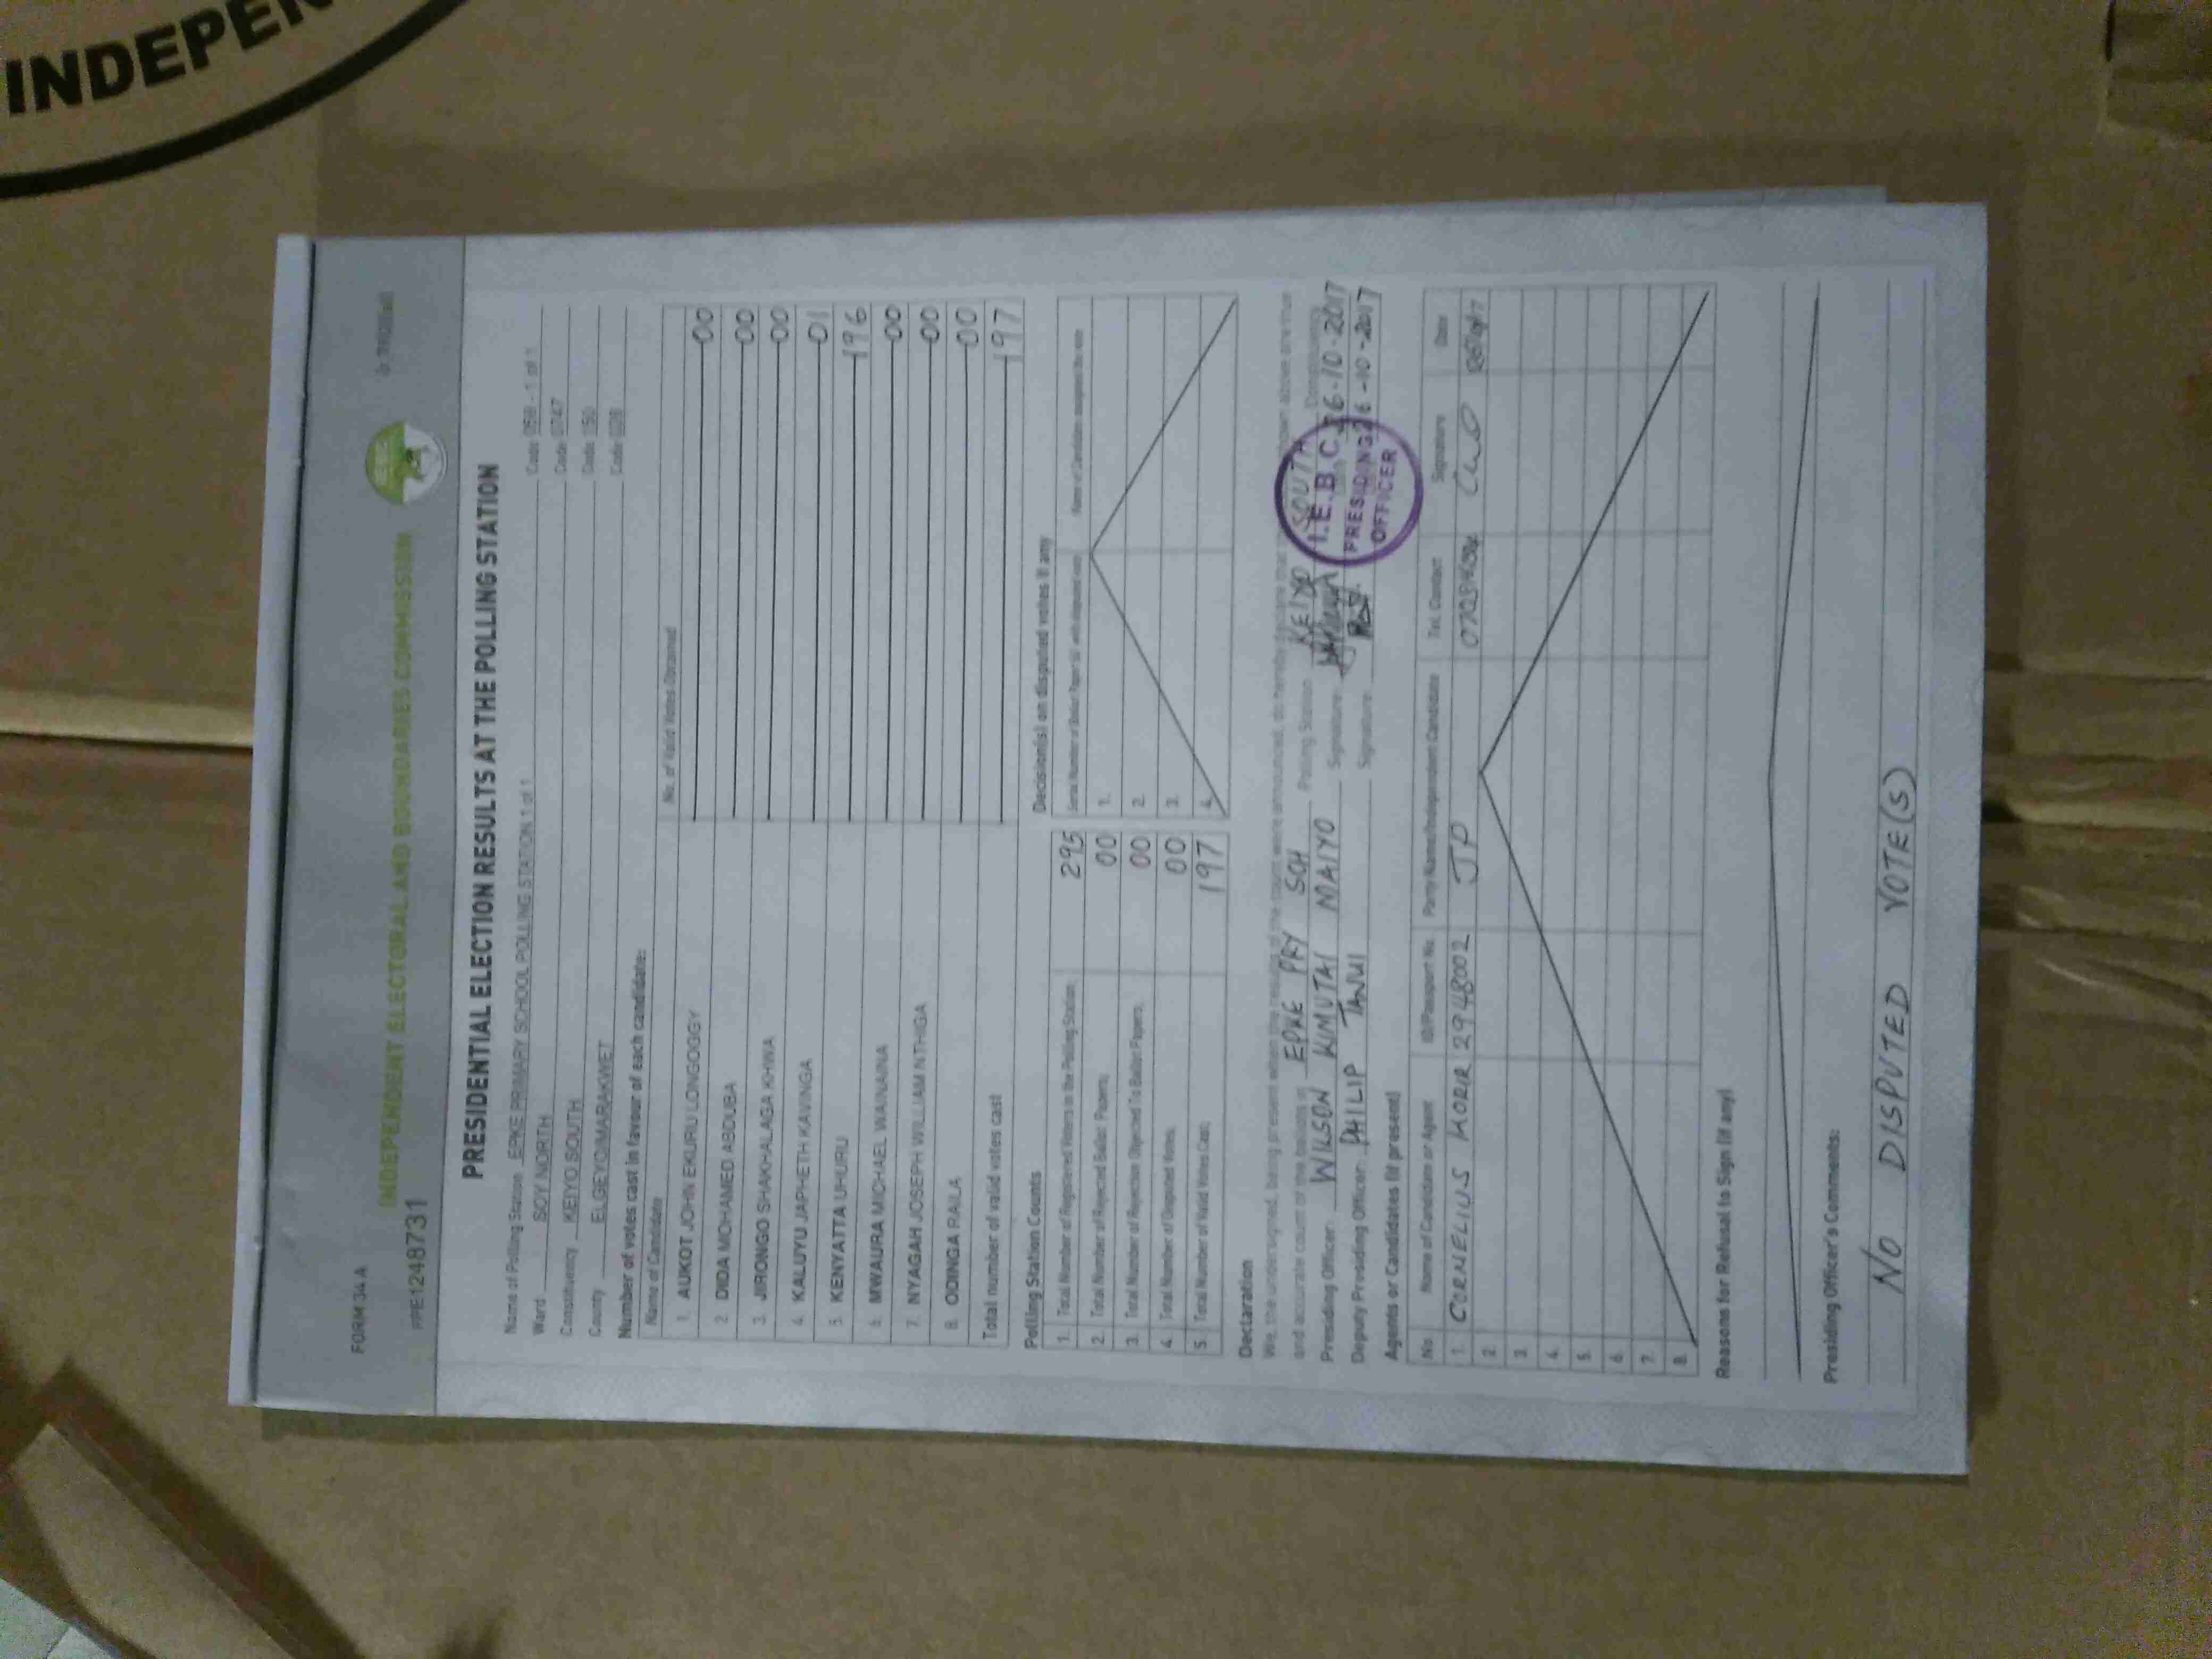 INDEPEN
FORM 34A
INDEPENDENT ELECTORAL AND BOUNDARIES COMMISSION
PPE1248731
PRESIDENTIAL ELECTION RESULTS AT THE POLLING STATION
Name of Polling Station EPKE PRIMARY SCHOOL POLLING STATION 1 of 1 Code 058 - 1 of 1
Ward SOY NORTH Code 0747
Constituency KEIYO SOUTH Code 150
County ELGEYO/MARAKWET Code 028
Number of votes cast in favour of each candidate:
Name of Candidate No. of Valid Votes Obtained
1. AUKOT JOHN EKURU LONGOGGY 00
2. DIDA MOHAMED ABDUBA 00
3. JIRONGO SHAKHALAGA KHWA 00
4. KALUYU JAPHETH KAVINGA 01
5. KENYATTA UHURU 196
6. MWAURA MICHAEL WAINAINA 00
7. NYAGAH JOSEPH WILLIAM NTHIGA 00
8. ODINGA RAILA 00
Total number of valid votes cast 197
Polling Station Counts Decision(s) on disputed votes if any
1. Total Number of Registered Voters in the Polling Station 295
2. Total Number of Rejected Ballot Papers 00 1.
3. Total Number of Rejection Objected To Ballot Papers 00 2.
4. Total Number of Disputed Votes 00 3.
5. Total Number of Valid Votes Cast 197 4.
Declaration
We, the undersigned, being present when the results of the count were announced, do hereby declare that the shown above are true
and accurate count of the ballots in EPKE PRY SCH Polling Station KEIYO SOUTH Constituency
Presiding Officer: WILSON KIMUTAI MAIYO Signature: 26-10-2017
Deputy Presiding Officer: PHILIP TANUI Signature: 26-10-2017
I.E.B.C.
PRESIDING
OFFICER
Agents or Candidates (if present)
No Name of Candidate or Agent ID/Passport No. Party Name/Independent Candidate Tel. Contact Signature Date
1. CORNELIUS KORIR 29448002 JP
2.
3.
4.
5.
6.
7.
8.
Reasons for Refusal to Sign (if any)
Presiding Officer's Comments:
NO DISPUTED VOTE(S)